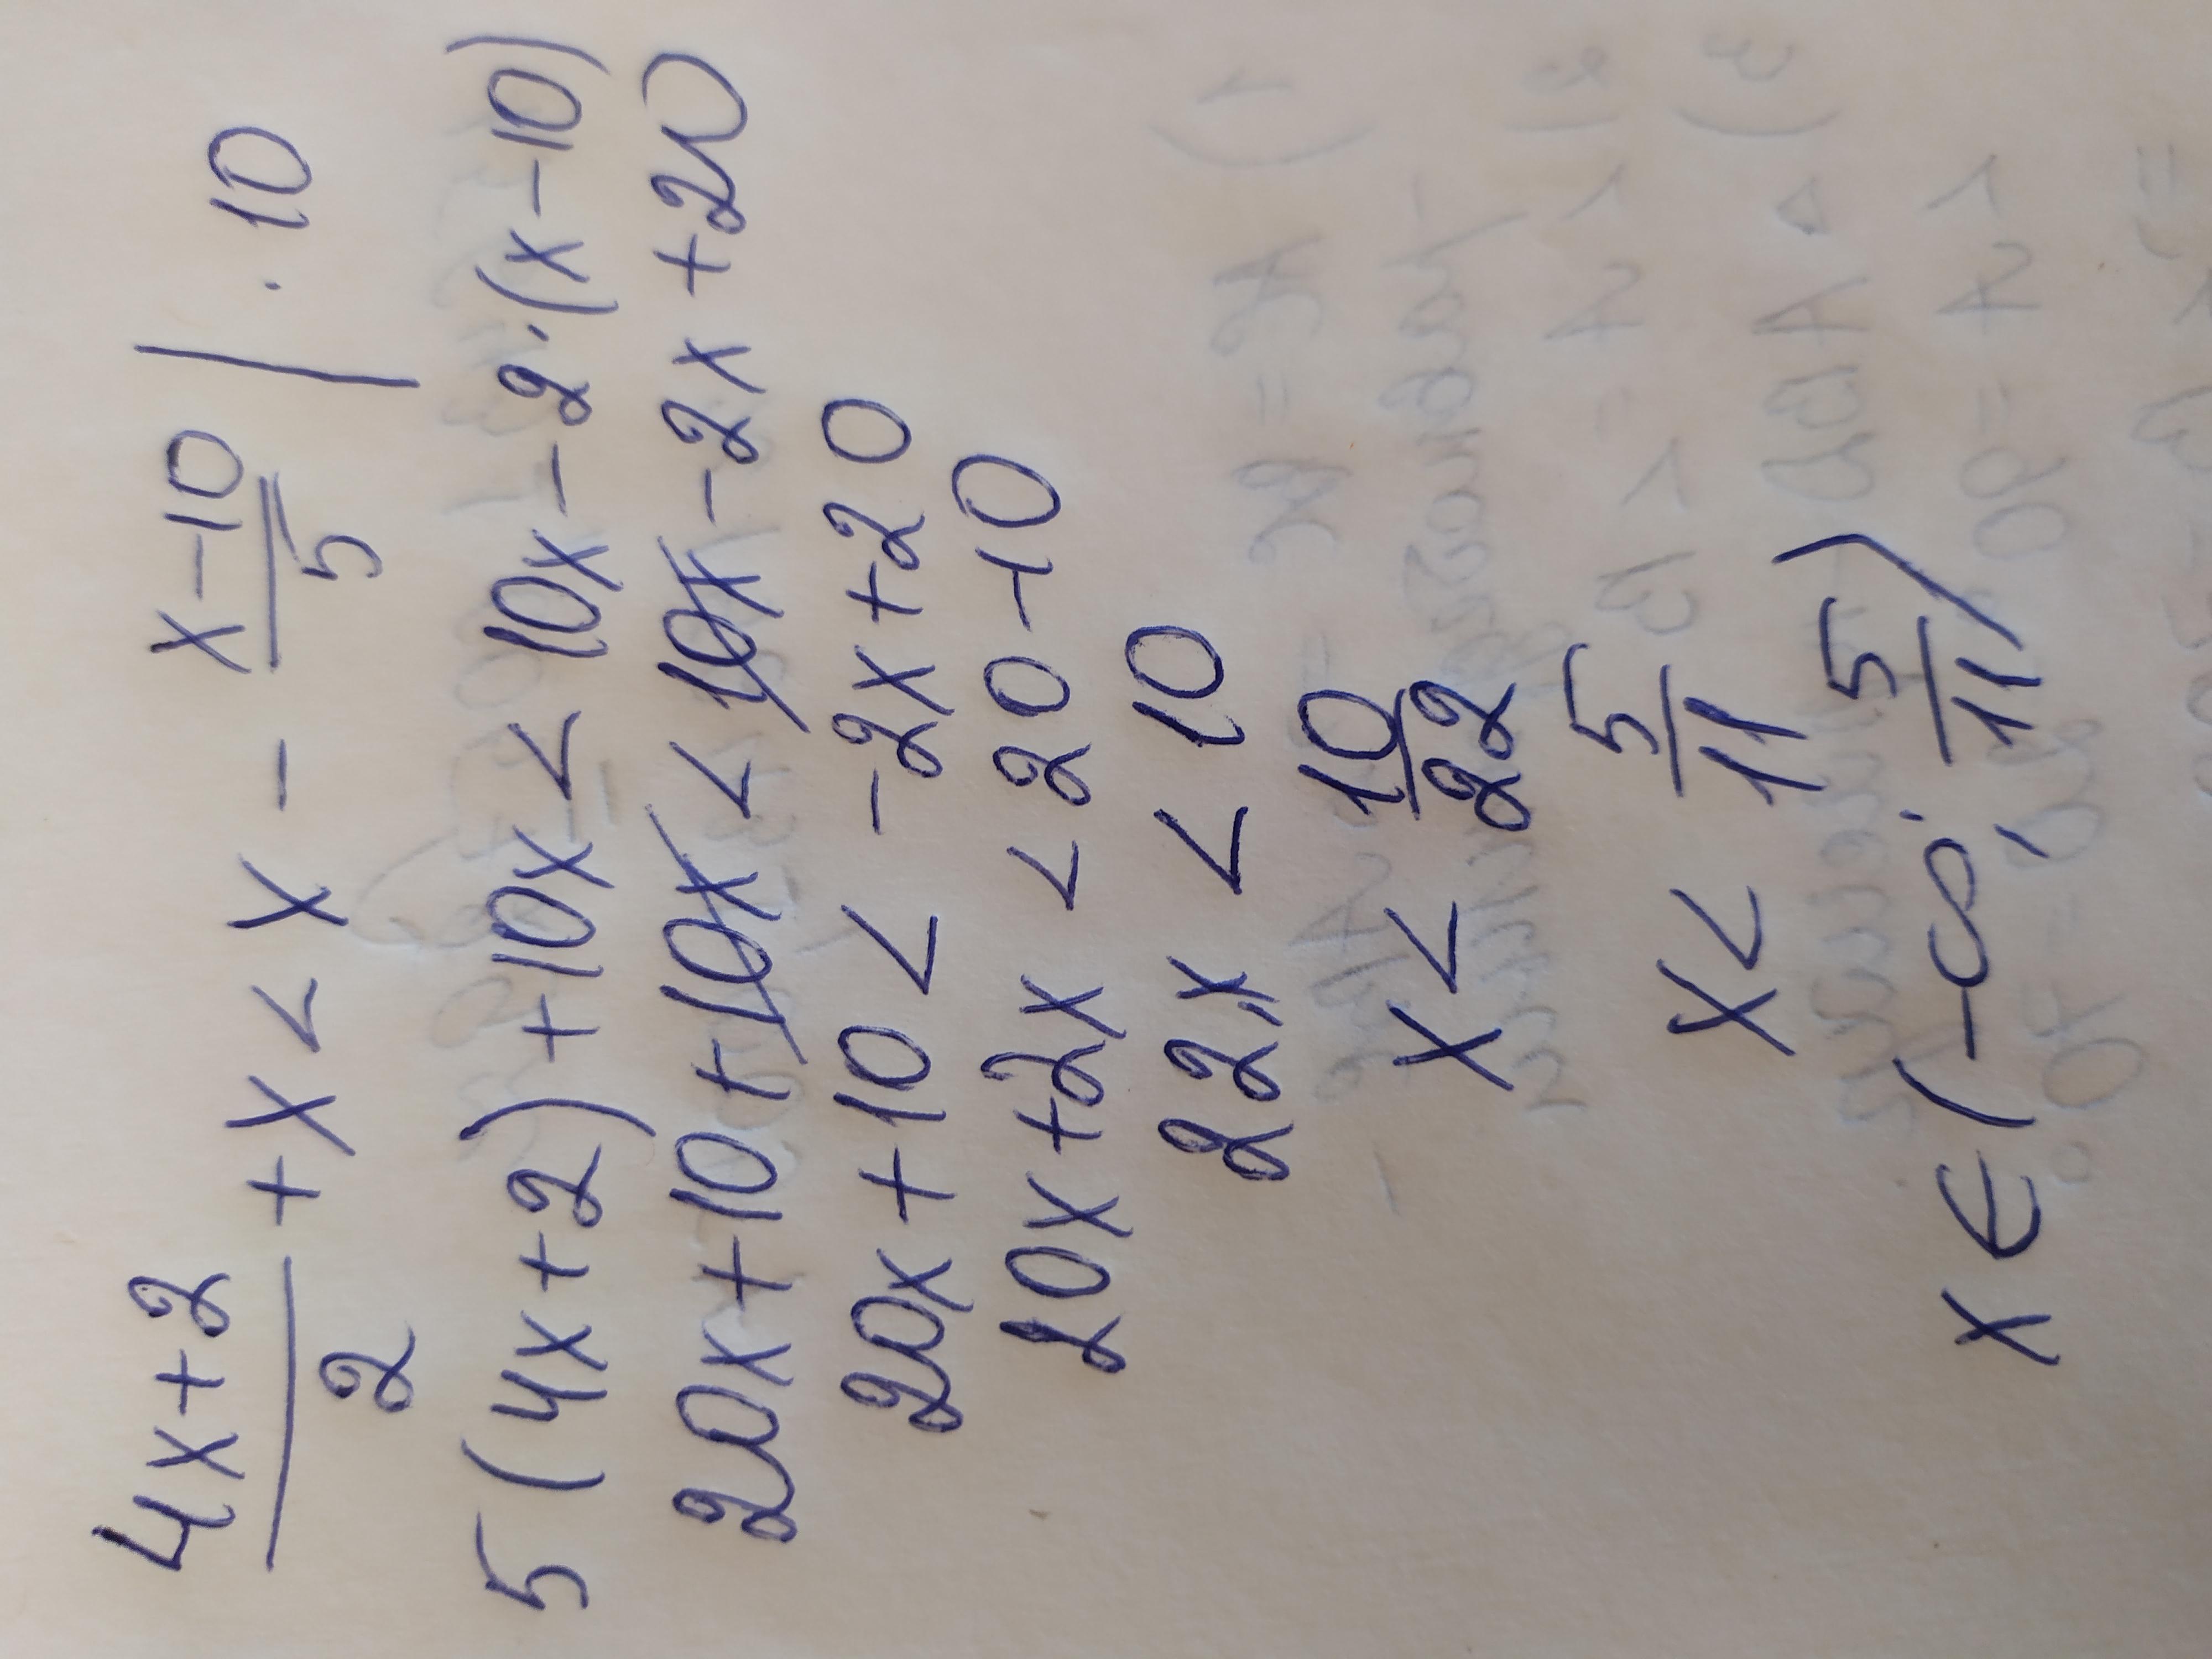 4x+2/2 + x < x - x-10/5 | · 10
5(4x+2)+10x < 10x-2·(x-10)
20x+10+10x < 10x-2x+20
20x+10 < -2x+20
20x+2x < 20-10
22x < 10
x < 10/22
x < 5/11
x ∈ (-∞; 5/11)